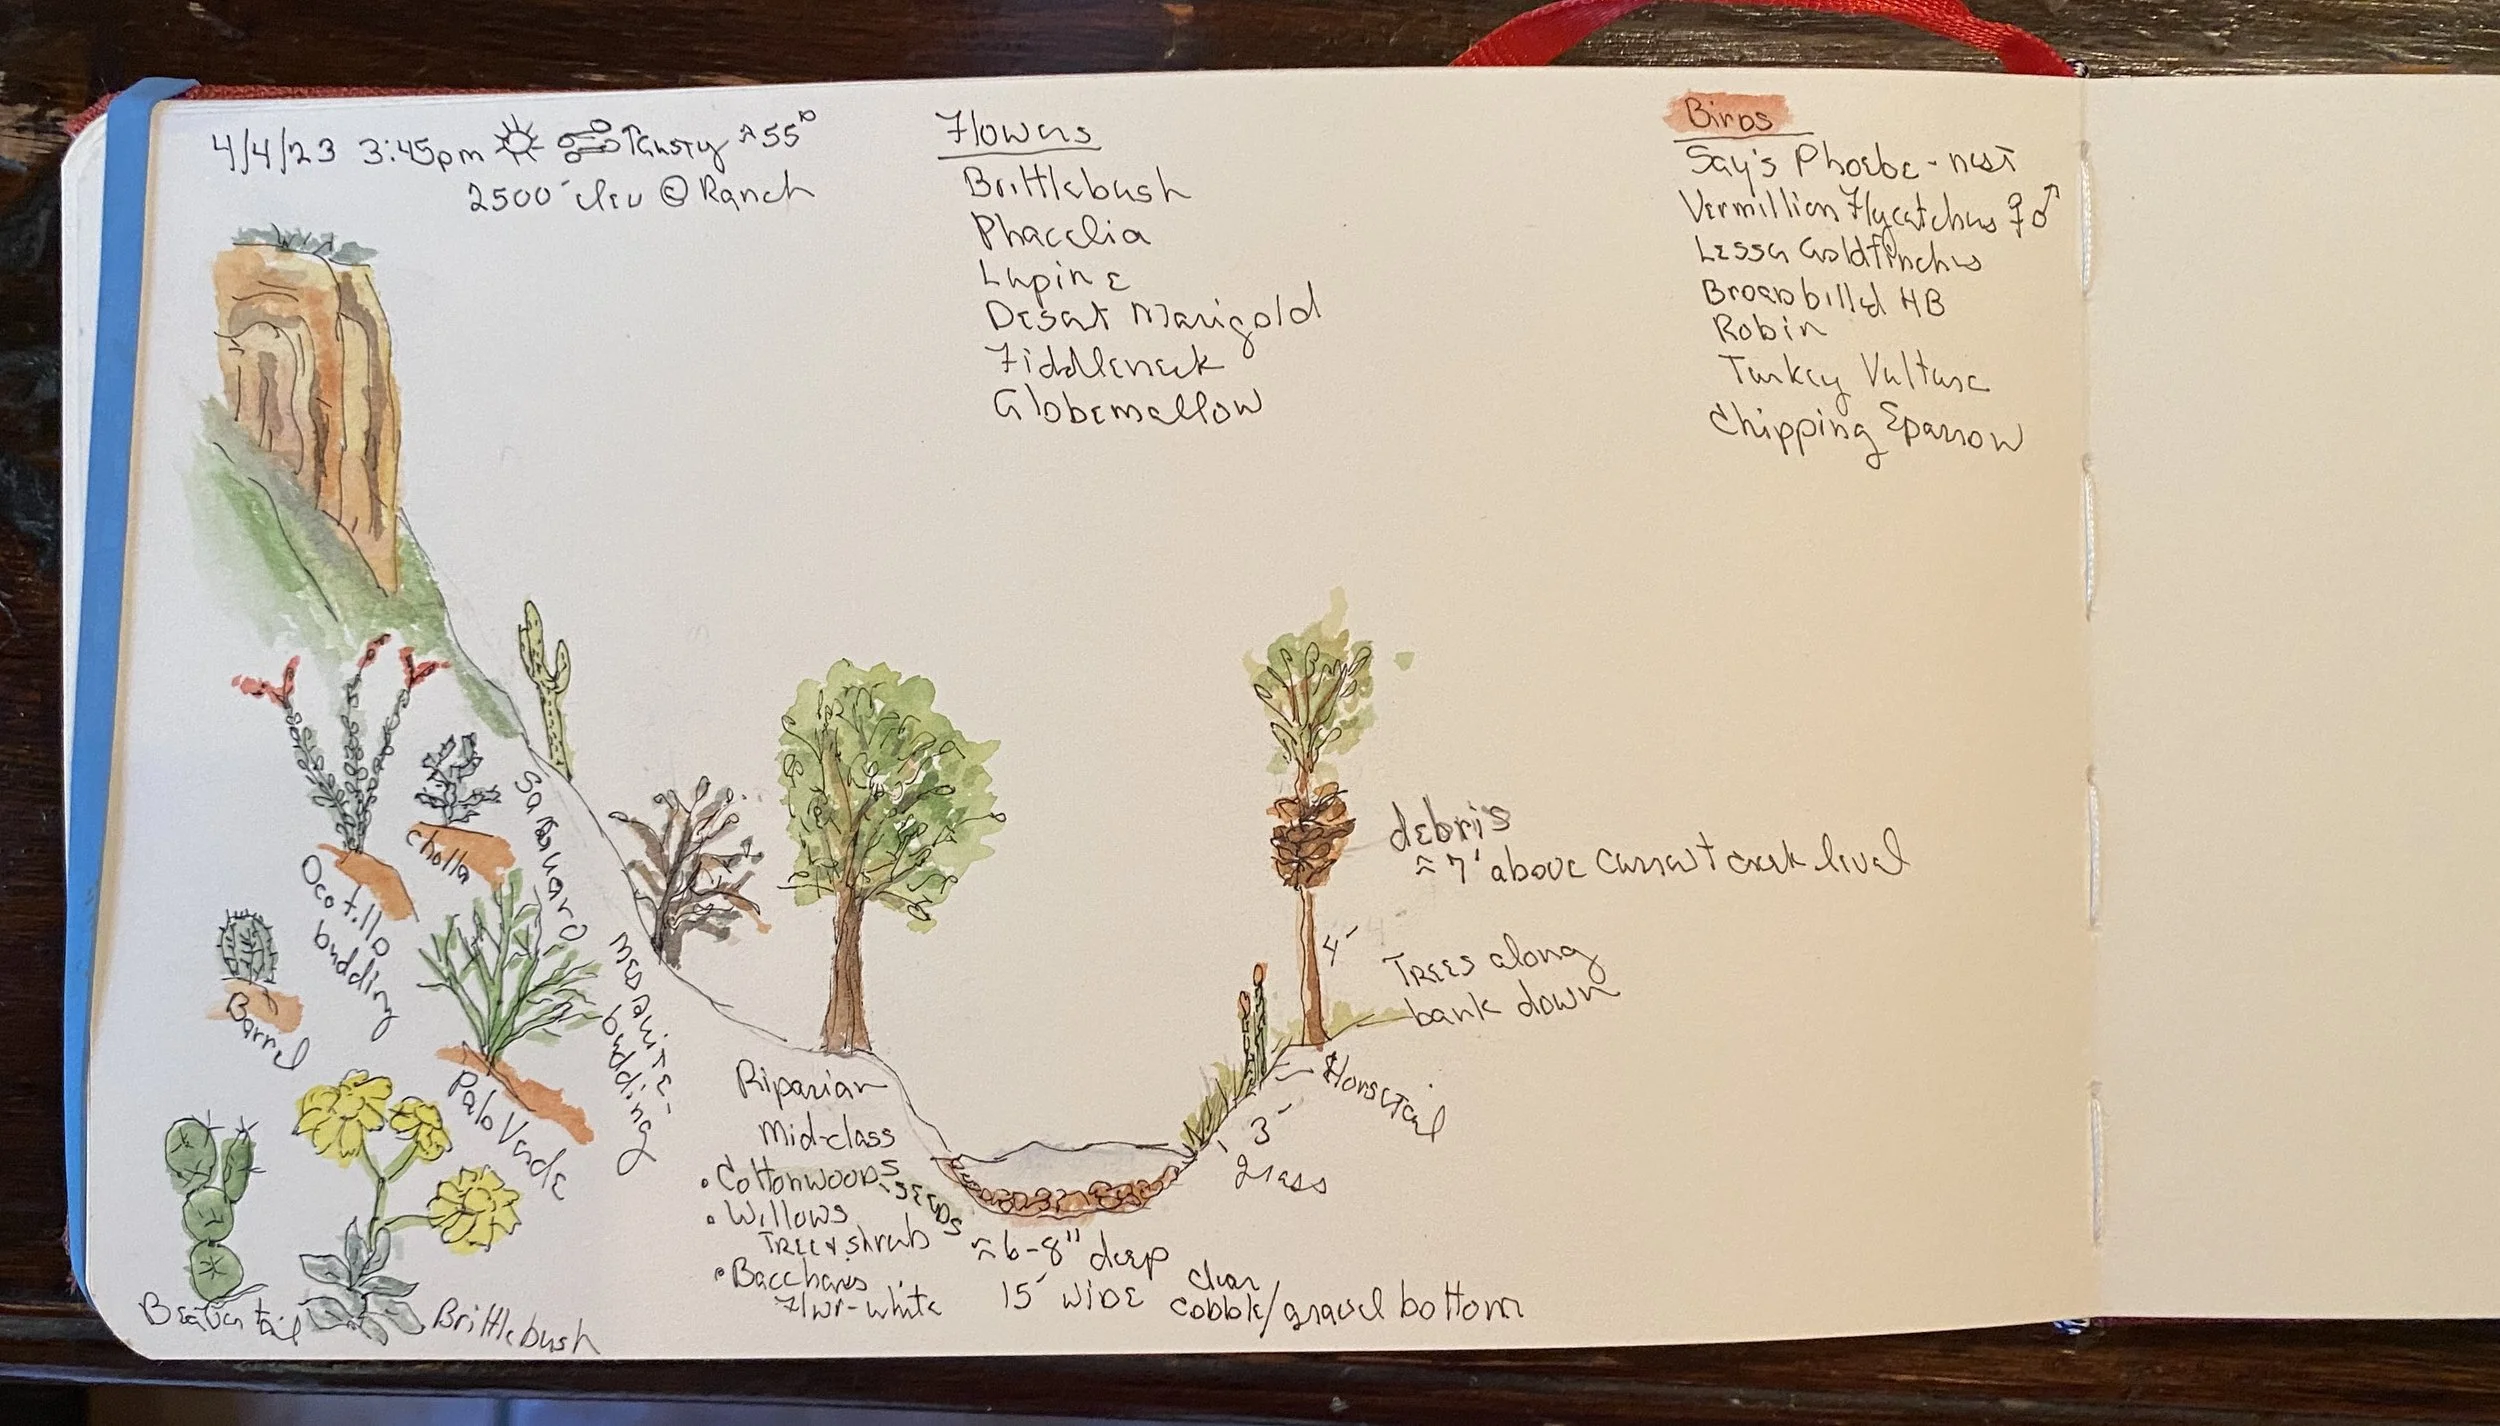 4/4/23 3:45pm ≈55°
2500' elev @ Ranch
Flowers
Brittlebush
Phacelia
Lupine
Desert Marigold
Fiddleneck
Globemallow
Birds
Say's Phoebe - nest
Vermillion Flycatchers ♀♂
Lesser Goldfinches
Broadbilled HB
Robin
Turkey Vulture
Chipping Sparrow
Saguaro
Cholla
Ocotillo
budding
Barrel
Palo Verde
Mesquite-
budding
Beavertail
Brittlebush
Riparian
Mid-class
• Cottonwoods-seeds
• Willows
Tree & shrub
• Baccharis
Flwr-white
≈6-8" deep
15' wide
clear
cobble/gravel bottom
debris
≈7' above current creek level
4'
Trees along
bank down
Horsetail
3'
grass